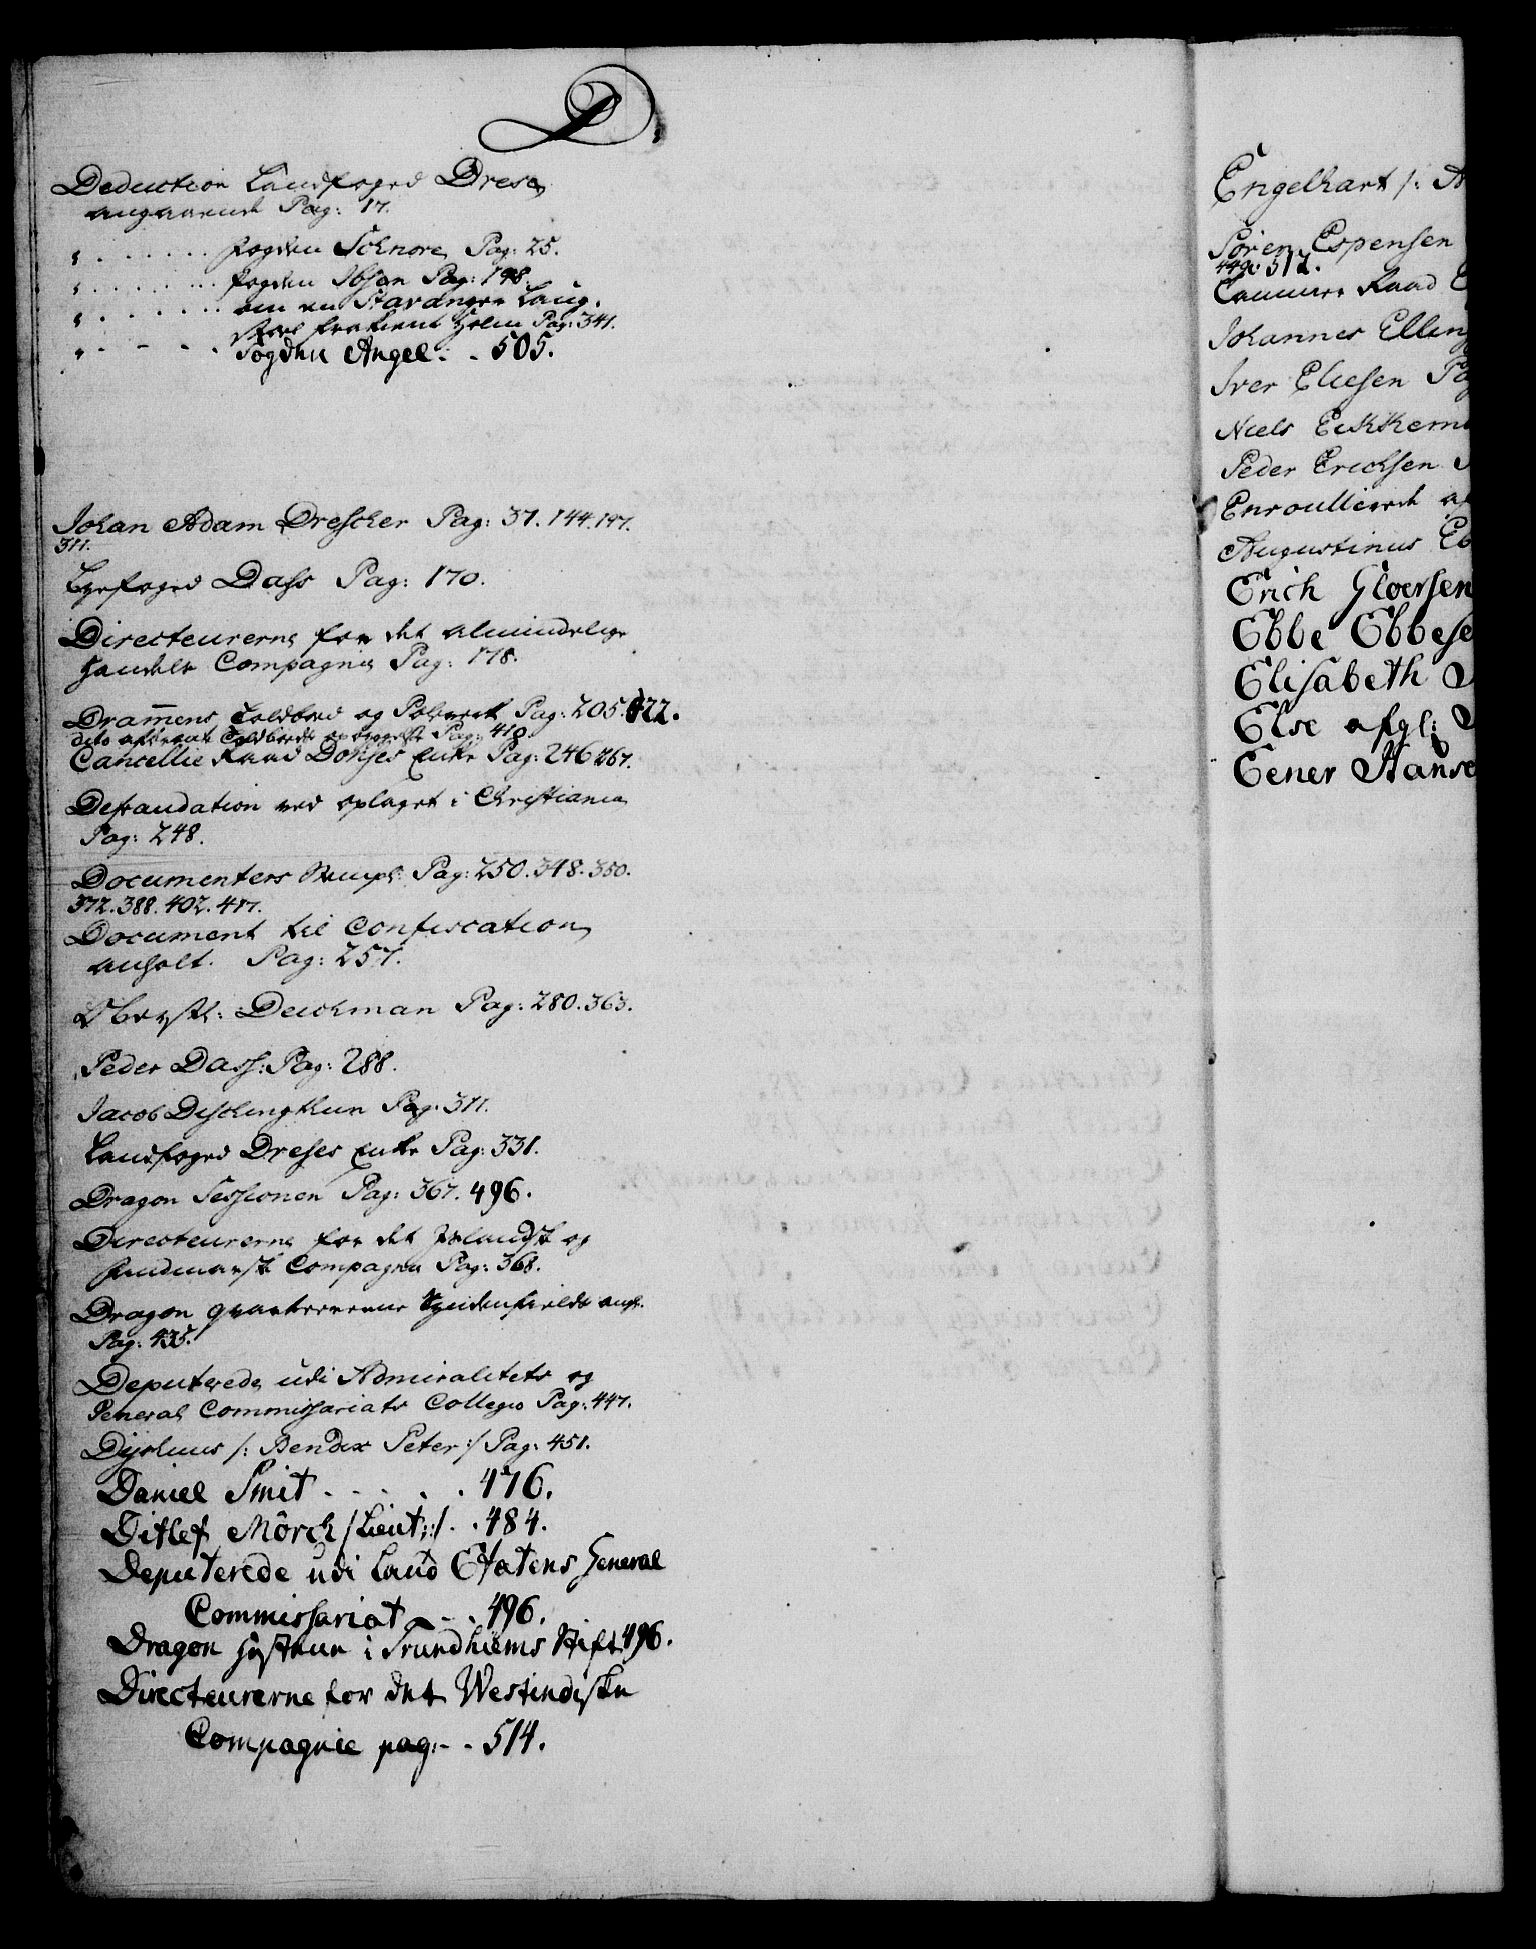 D.
Deduction Landfoged Drese
angaaende Pag: 17.
" . . . . . . . fogden Schnore, Pag: 25.
" . . . . . . . fogden Ibsen Pag: 198.
" . . . . . . om en Stavanger Laug.
Holm Pag: 341.
" - - - . Fogden Angel. . 505.
Johan Adam Drescher Pag: 37. 144. 197.
311.
Byefoged Dass Pag: 170.
Directeurerne for det almindelige
Handels Compagnie Pag: 178.
Drammens Toldboed og Pag: 205. 422.
dito Pag: 410.
Cancellie Raad Enke Pag: 246 267.
Defraudation ved oplaget i Christiania
Pag: 248.
Documenters Stempl: Pag: 250. 348. 350.
372. 388. 402. 417.
Document til Confiscation
anholt. Pag: 257.
Oberstl: Deichman Pag: 280. 363.
Peder Dass: Pag: 288.
Jacob Pag: 311.
Landfoged Dreses Enke Pag: 331.
Dragon Sessionen Pag: 367. 496.
Directeurerne for det Islandsk og
Finmarsk Compagnie Pag: 368.
Dragon qvarteererne Syndenfields ang:
Pag: 435.
Deputerede udi Admiralitets og
General Commissariats Collegio Pag: 447.
/: Bendix Peter :/ Pag: 451.
Daniel Smit . . . . . 476.
Ditlef Mörch /: Lieut: :/ . . 484.
Deputerede udi Land Etatens General
Commissariat - - . 496.
Dragon i Trundhiems Stift 496.
Directeurerne for det Westindiske
Compagnie pag: - . 514.
Engelhart /: A
Sören Espensen
449. 512.
Cammer Raad E
Johannes Elling
Iver Eliesen Pa
Niels
Peder Erichsen
Enroulleerede a
Augustinus Eb
Erich Gloersen
Ebbe Ebbese
Elisabeth
Else afgl:
Eener Hanse